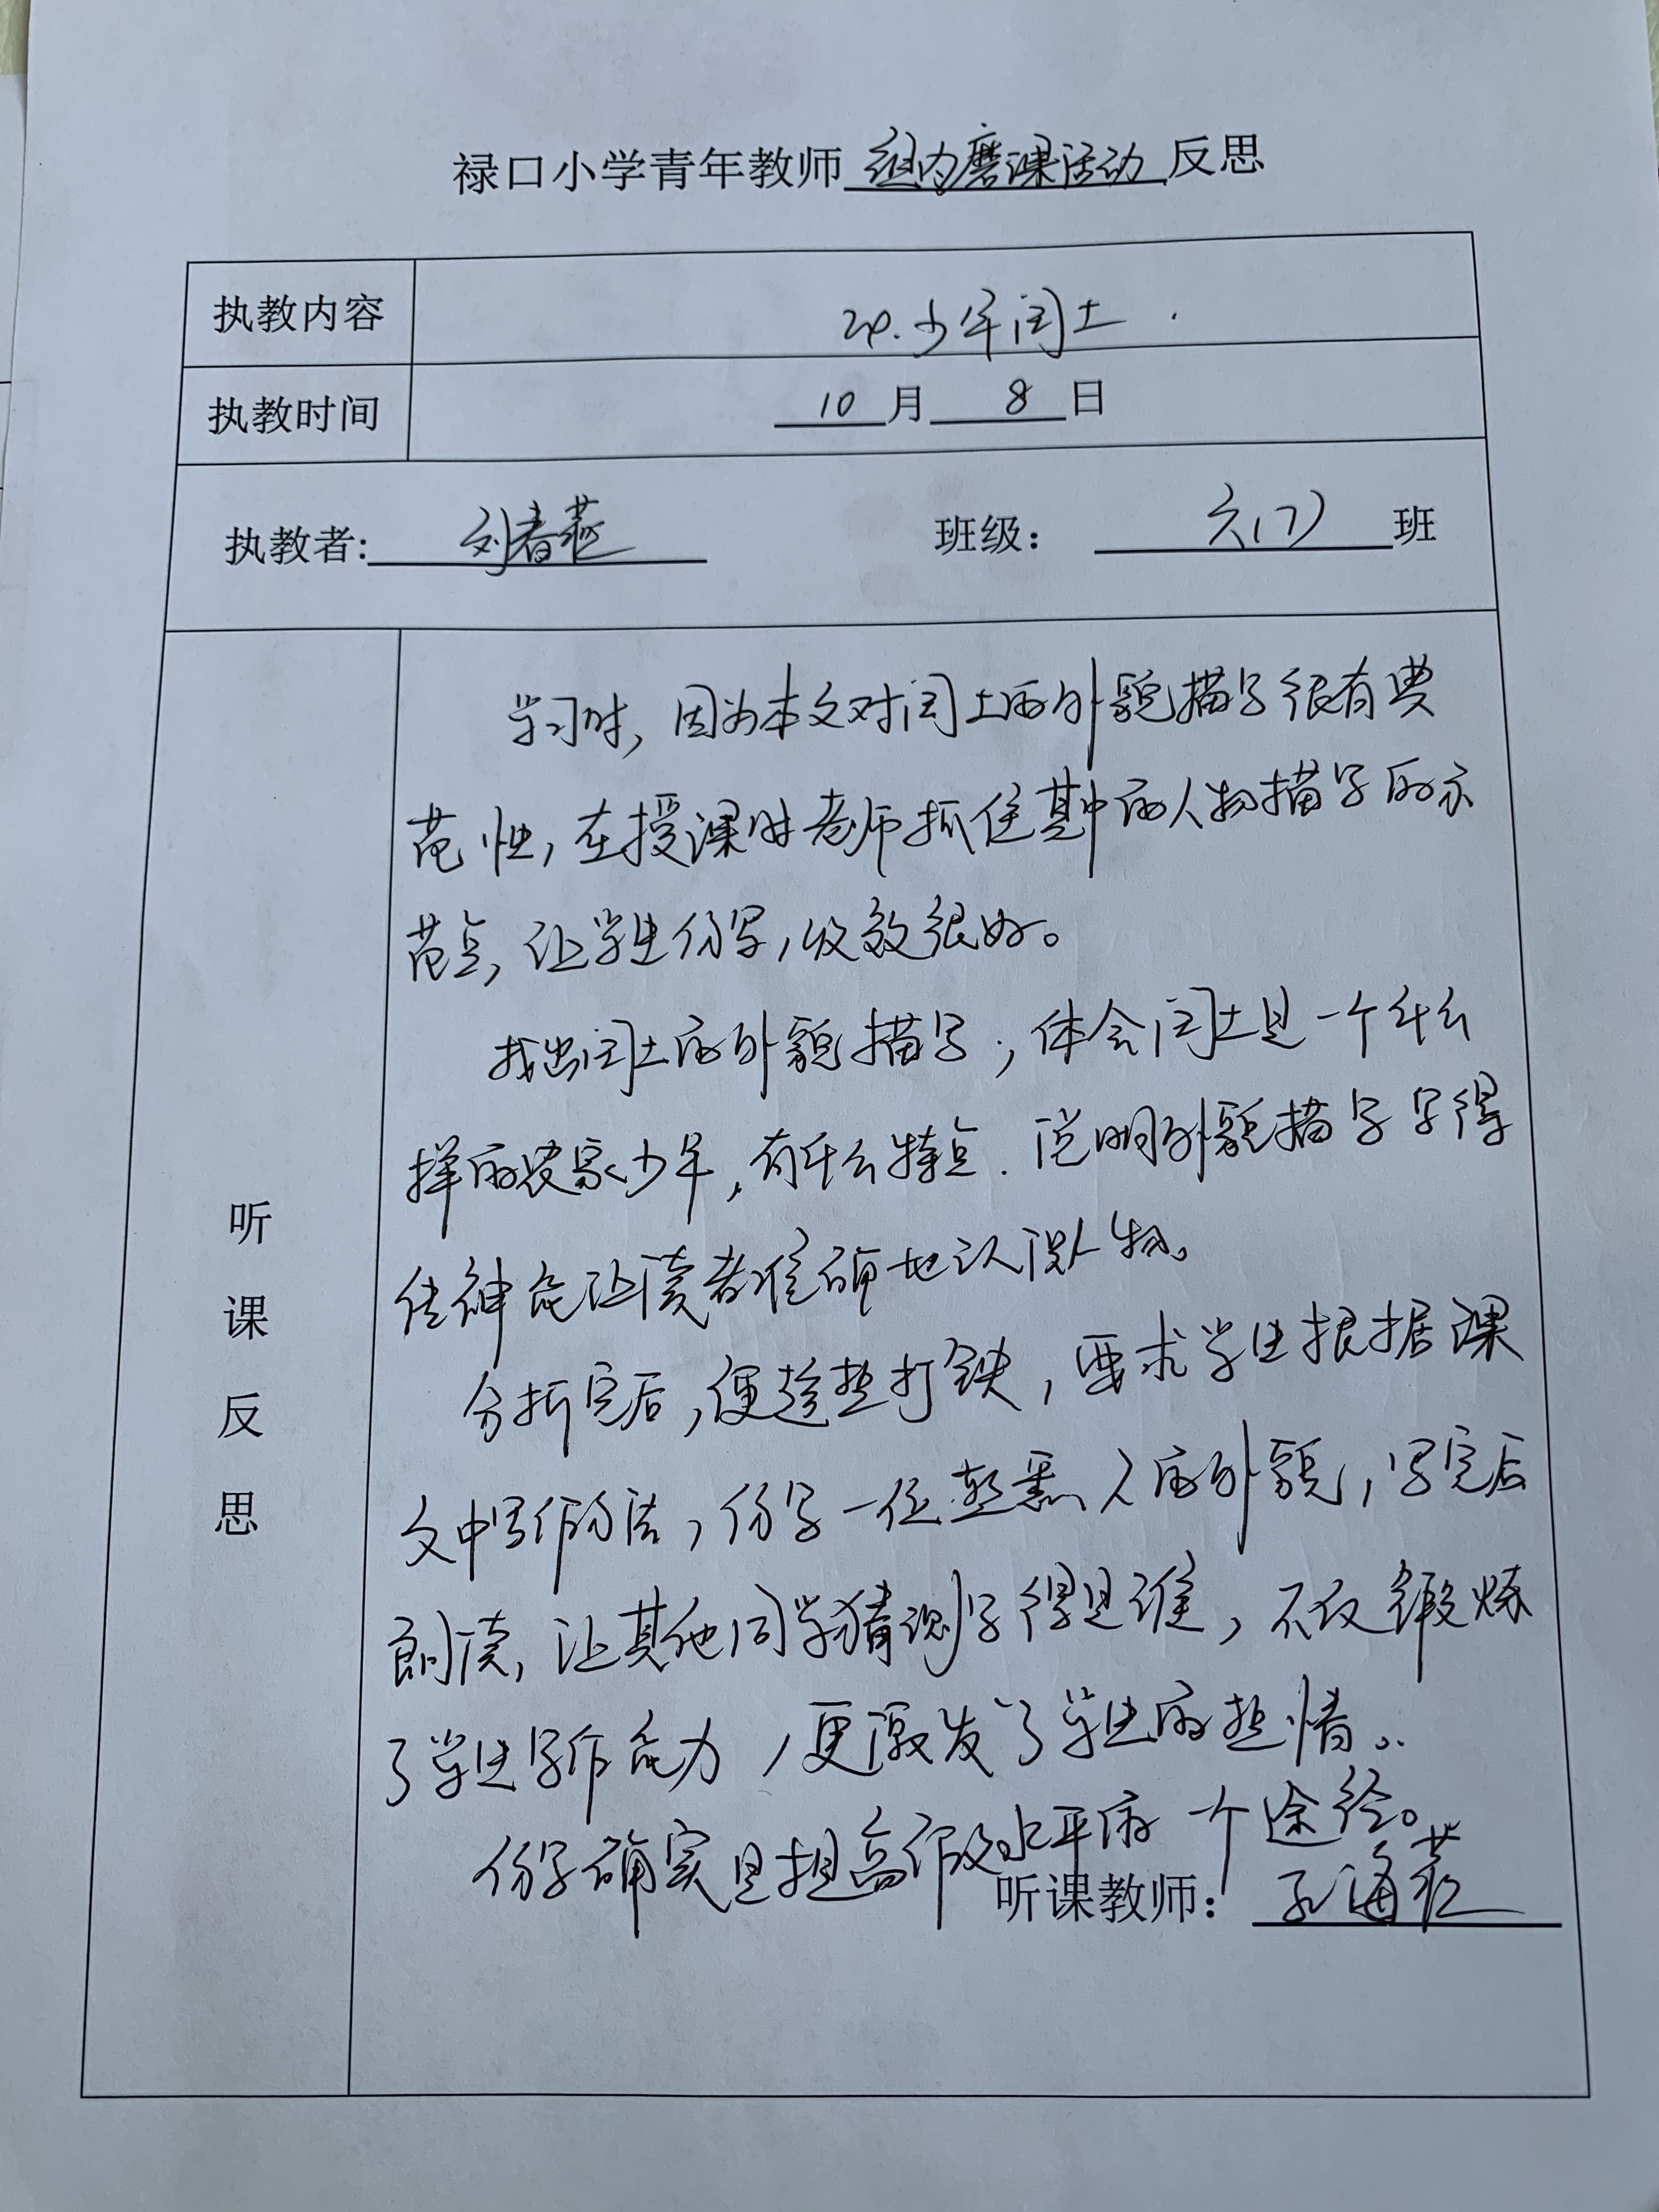 禄口小学青年教师组内磨课活动反思
执教内容 24.少年闰土
执教时间 10月8日
执教者:刘春燕 班级：六(7)班
听课反思
学习时，因为本文对闰土的外貌描写很有典
范性，在授课时老师抓住其中的人物描写的示
范点，让学生仿写，收效很好。
找出闰土的外貌描写，体会闰土是一个什么
样的农家少年，有什么特点．说明外貌描写写得
传神能让读者准确地认识人物。
分析完后，便趁热打铁，要求学生根据课
文中写作方法，仿写一位熟悉人的外貌，写完后
朗读，让其他同学猜测写得是谁，不仅锻炼
了学生写作能力，更激发了学生的热情。
仿写确实是提高作文水平的一个途径。
听课教师：孔海燕